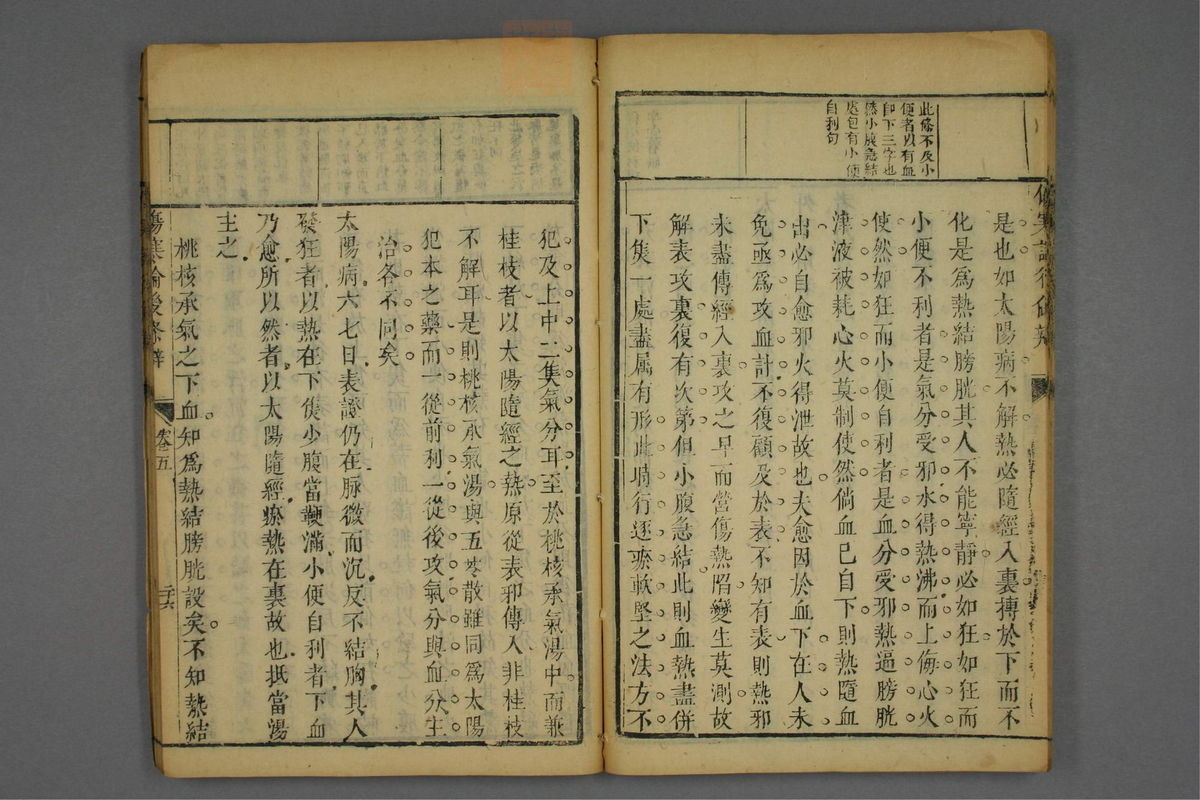 此條不及小
便者以有血
自下三字也
然小腹急結
處包有小便
自利句
是也如太陽病不解熱必隨經入裏搏於下而不
化是爲熱結膀胱其人不能寧靜必如狂如狂而
小便不利者是氣分受邪水得熱沸而上侮心火
使然如狂而小便自利者是血分受邪熱逼膀胱
津液被耗心火莫制使然倘血已自下則熱隨血
出必自愈邪火得泄故也夫愈因於血下在人未
免亟爲攻血計不復顧及於表不知有表則熱邪
未盡傳經入裏攻之早而營傷熱陷變生莫測故
解表攻裏復有次第但小腹急結此則血熱盡併
下焦一處盡屬有形此時行逐瘀軟堅之法方不
犯及上中二焦氣分耳至於桃核承氣湯中而兼
桂枝者以太陽隨經之熱原從表邪傳入非桂枝
不解耳是則桃核承氣湯與五苓散雖同爲太陽
犯本之藥而一從前利一從後攻氣分與血分主
治各不同矣
太陽病六七日表證仍在脉微而沉反不結胸其人
發狂者以熱在下焦少腹當鞕滿小便自利者下血
乃愈所以然者以太陽隨經瘀熱在裏故也抵當湯
主之
桃核承氣之下血知爲熱結膀胱設矣不知熱結
傷寒論後條辨
卷五
二六